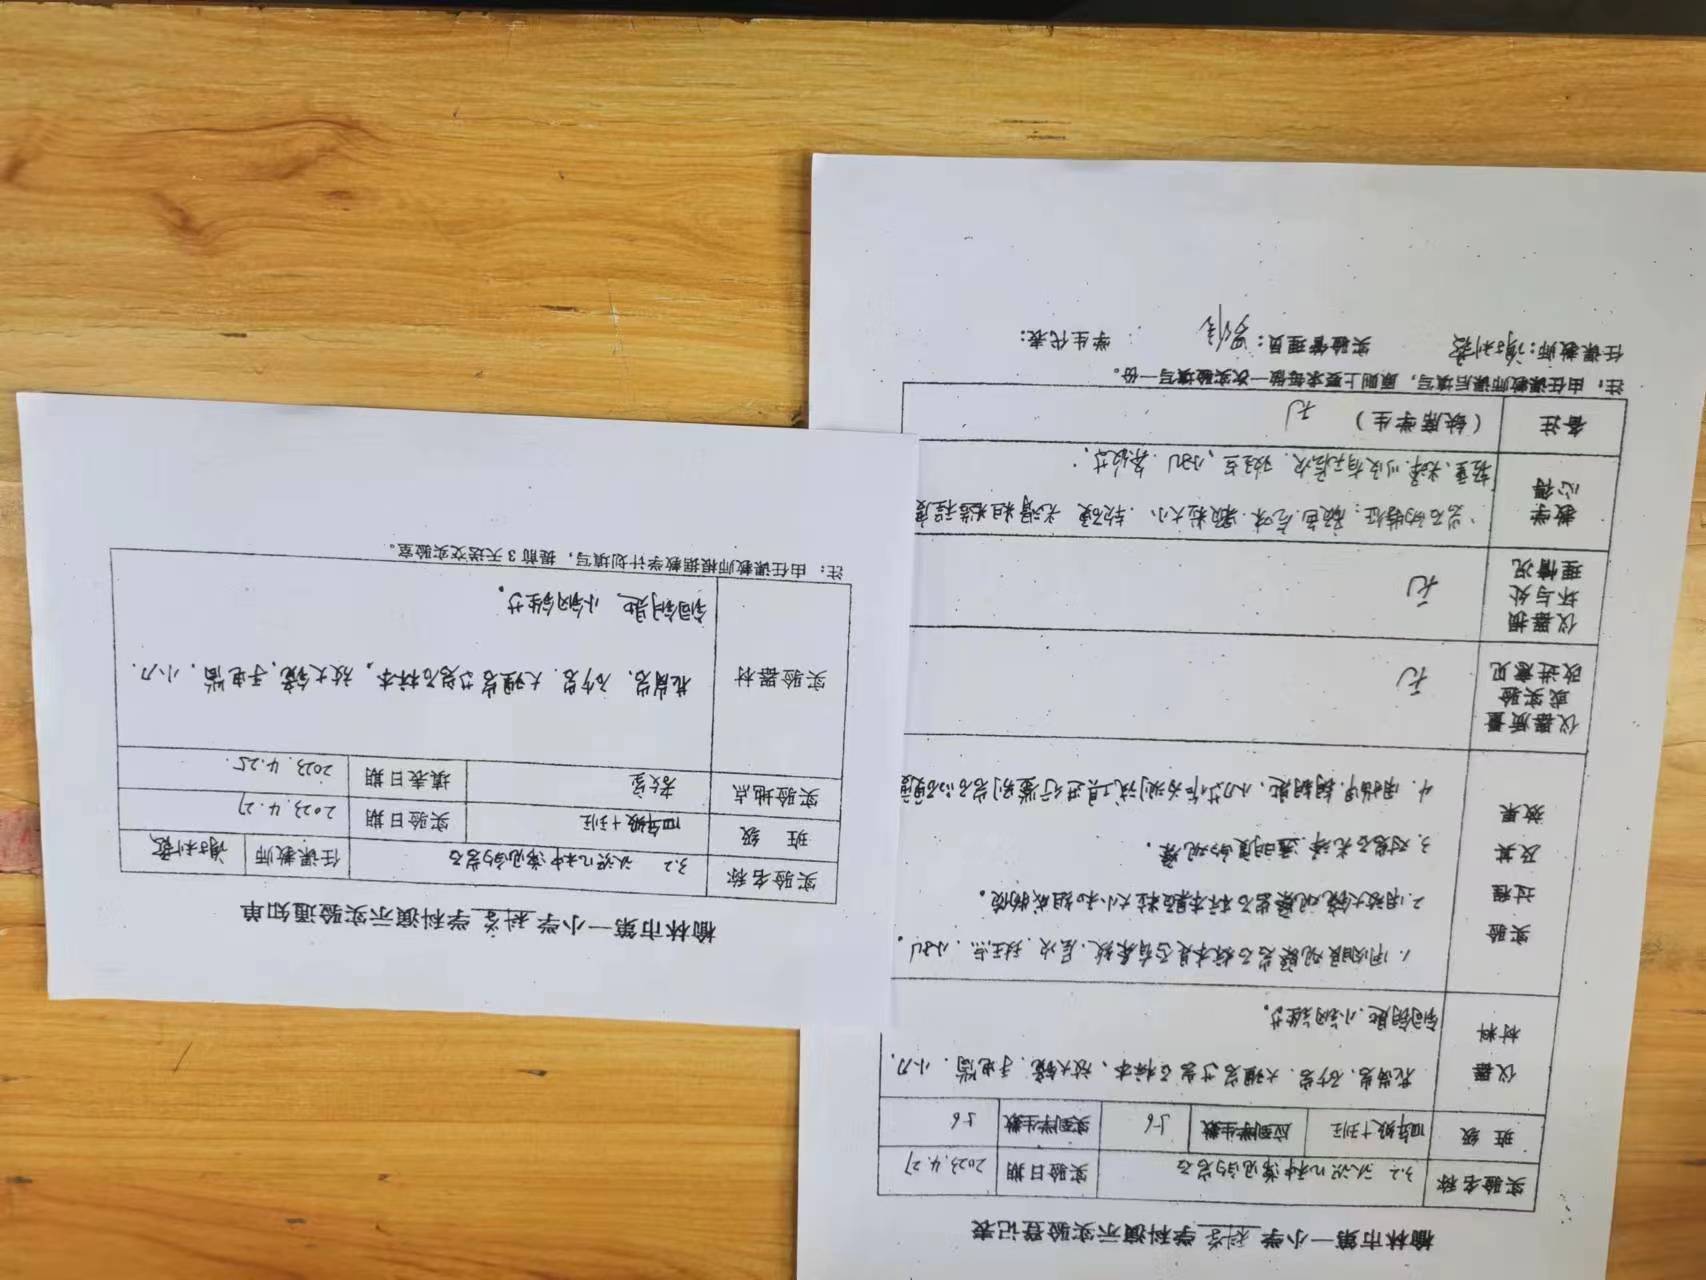 榆林市第一小学 科学 学科演示实验通知单
实验名称 3.2 认识几种常见的岩石 任课教师
班 级 四年级十班 实验日期 2023.4.27
实验地点 教室 填表日期 2023.4.25.
实验器材 花岗岩、砂岩、大理岩等岩石标本。放大镜、手电筒、小刀.
铜钥匙、小钢锉等。
注：由任课教师根据教学计划填写，提前3天送交实验室。
榆林市第一小学 科学 学科演示实验登记表
实验名称 3.2 认识几种常见的岩石 实验日期 2023.4.27
班 级 四年级十班 应到学生数 56 实到学生数 56
仪器材料 花岗岩、砂岩、大理岩等岩石标本、放大镜、手电筒、小刀.
铜钥匙、小钢锉等。
实验过程及其效果
1.用肉眼观察岩石标本是否有条纹、层次、斑点、小孔。
2.用放大镜观察岩石标本颗粒大小和组成物质。
3.对岩石光泽、透明度的观察。
4.用指甲、铜钥匙、小刀等作为测试工具进行鉴别岩石的硬度
仪器质量或实验改进意见 无
仪器损坏与处理情况 无
教学心得
岩石的特征：颜色、气味、颗粒大小、软硬、光滑粗糙程度
轻重、光泽、以及有无层次、斑点、小孔、条纹等.
备注 （缺席学生） 无
注：由任课教师课后填写，原则上要求每做一次实验填写一份。
任课教师： 实验管理员： 学生代表：